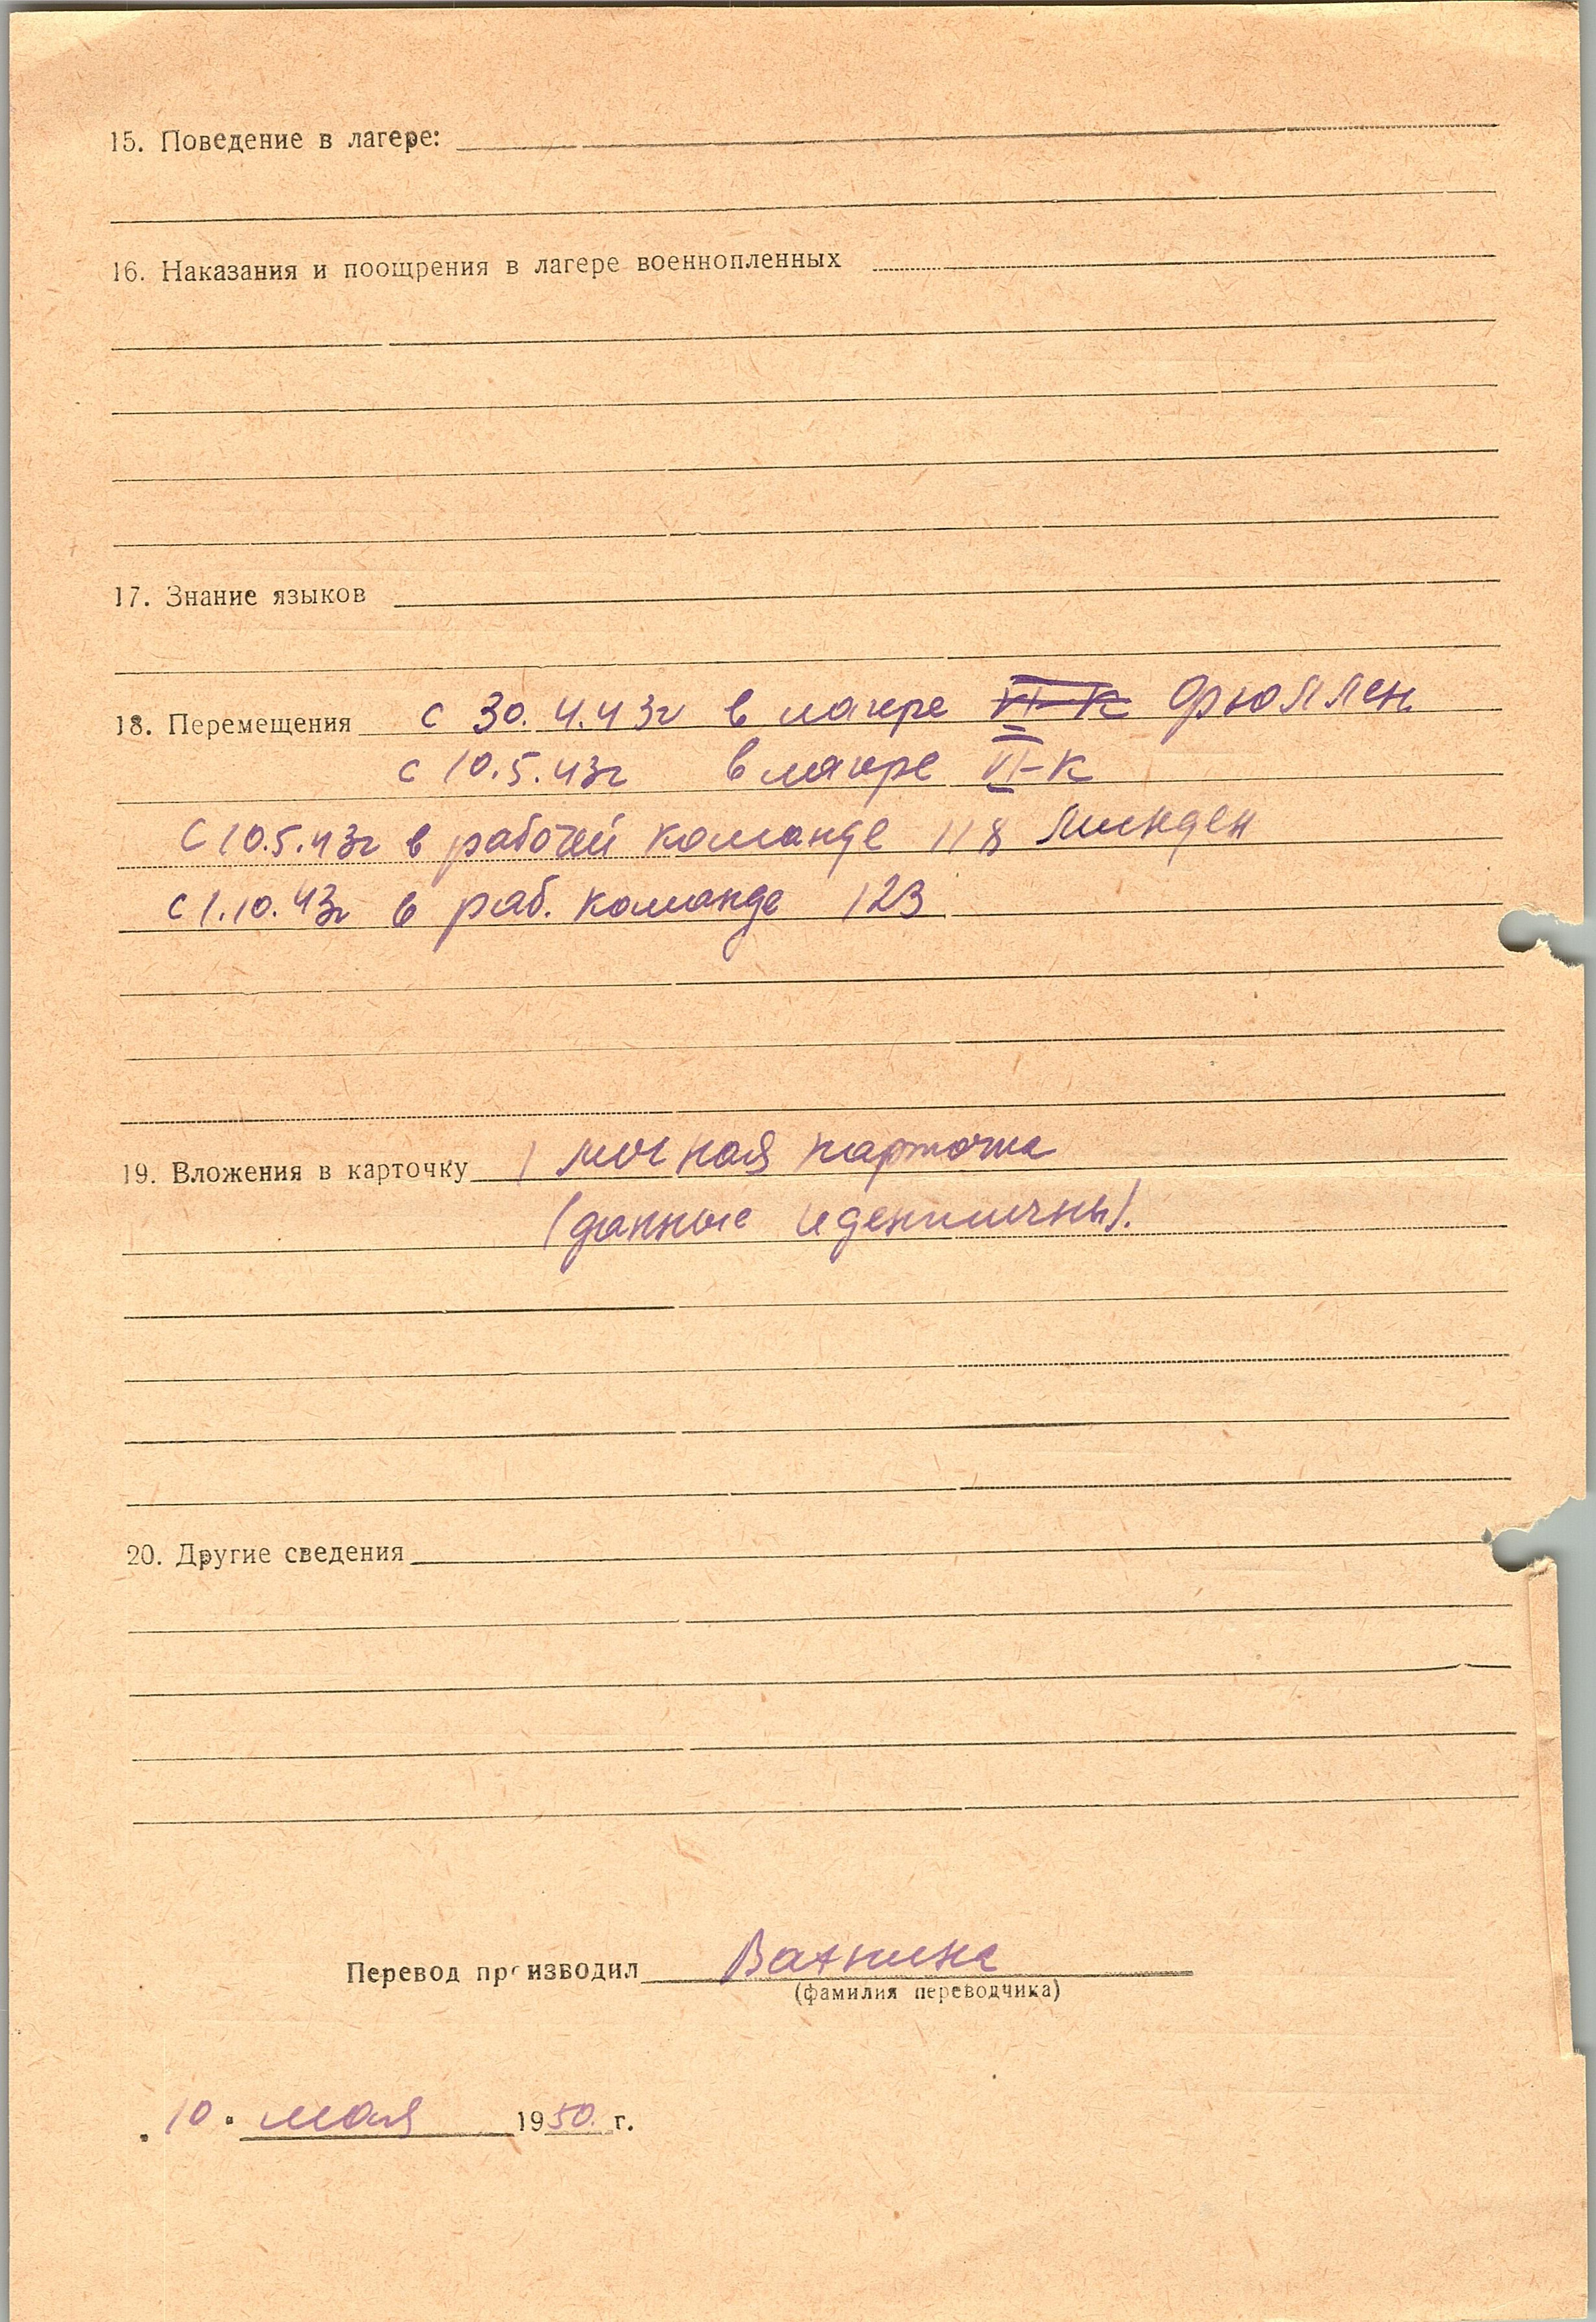 15. Поведение в лагере:
16. Наказания и поощрения в лагере военнопленных
17. Знание языков
18. Перемещения с 30.4.43г в лагере VI-К Дрюллен
с 10.5.43г в лагере VI-К
с 10.5.43г в рабочей команде 118 Линден
с 1.10.43г в раб. команде 123
19. Вложения в карточку 1 личная карточка
(данные идентичны).
20. Другие сведения
Перевод производил
(фамилия переводчика)
10. мая 1950 г.